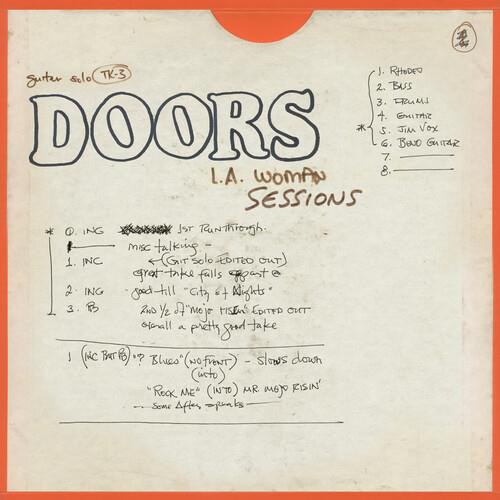 guitar solo TK-3
DOORS
L.A. WOMAN
SESSIONS
1. RHODES
2. BASS
3. DRUMS
4. GUITAR
* 5. JIM VOX
6. BEND GUITAR
7.
8.
* 0. INC 1ST RUNTHROUGH.
misc talking -
1. INC ←(GIT SOLO EDITED OUT)
great take falls apart @
2. INC good till "City of Nights"
3. PB 2ND 1/2 of "MOJO RISEN" EDITED OUT
overall a pretty good take
1 (INC BUT PB) "? Blues" (NO FRONT) - Slows down
(into)
"ROCK ME" (INTO) MR MOJO RISIN'
Some After